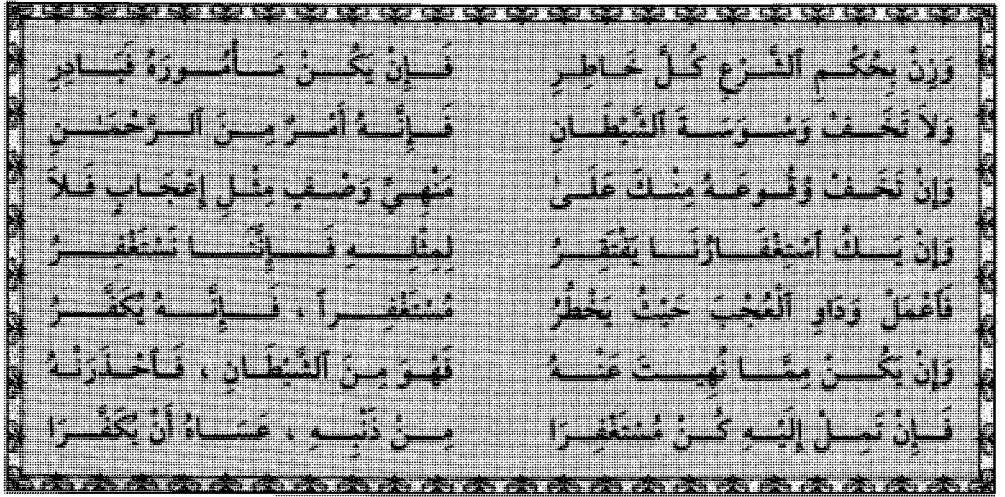 وَزِنْ بِحُكْمِ ٱلشَّرْعِ كُلَّ خَاطِرِ فَإِنْ يَكُنْ مَأْمُورَهُ فَبَادِرِ
وَلاَ تَخَفْ وَسْوَسَةَ ٱلشَّيْطَانِ فَإِنَّهُ أَمْرٌ مِنَ ٱلرَّحْمَـٰنِ
وَإِنْ تَخَفْ وُقُوعَهُ مِنْكَ عَلَىٰ مَنْهِيِّ وَصْفٍ مِثْلِ إِعْجَابٍ فَلاَ
وَإِنْ يَكُ ٱسْتِغْفَارُنَا يَفْتَقِرُ لِمِثْلِهِ فَإِنَّنَا نَسْتَغْفِرُ
فَٱعْمَلْ وَدَاوِ ٱلْعُجْبَ حَيْثُ يَخْطُرُ مُسْتَغْفِراً ، فَإِنَّهُ يُكَفِّرُ
وَإِنْ يَكُنْ مِمَّا نُهِيتَ عَنْهُ فَهْوَ مِنَ ٱلشَّيْطَانِ ، فَٱحْذَرَنْهُ
فَإِنْ تَمِلْ إِلَيْهِ كُنْ مُسْتَغْفِرَا مِنْ ذَنْبِهِ ، عَسَاهُ أَنْ يُكَفَّرَا